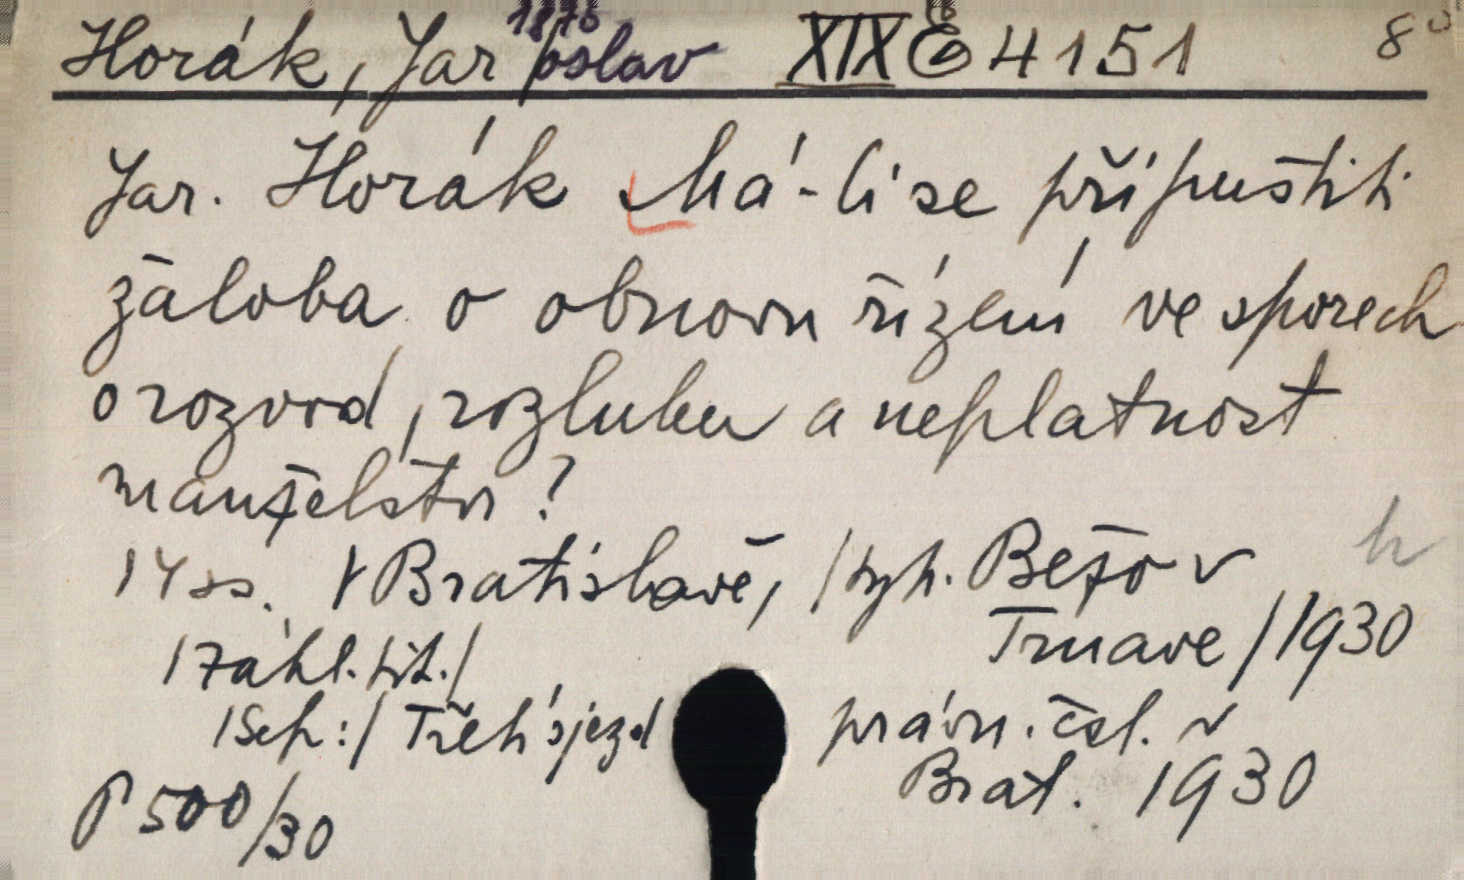 Horák, Jaroslav 1876 XIX E 4151 8°
Jar. Horák Má-li se připustiti
žaloba o obnovu řízení ve sporech
o rozvod, rozluku a neplatnost
manželství?
14 ss. V Bratislavě, /typ. Bežo v
Trnave/ 1930
/Záhl. tit./
/Sep:/ Třetí sjezd právn. čsl. v
Brat. 1930
P 500/30